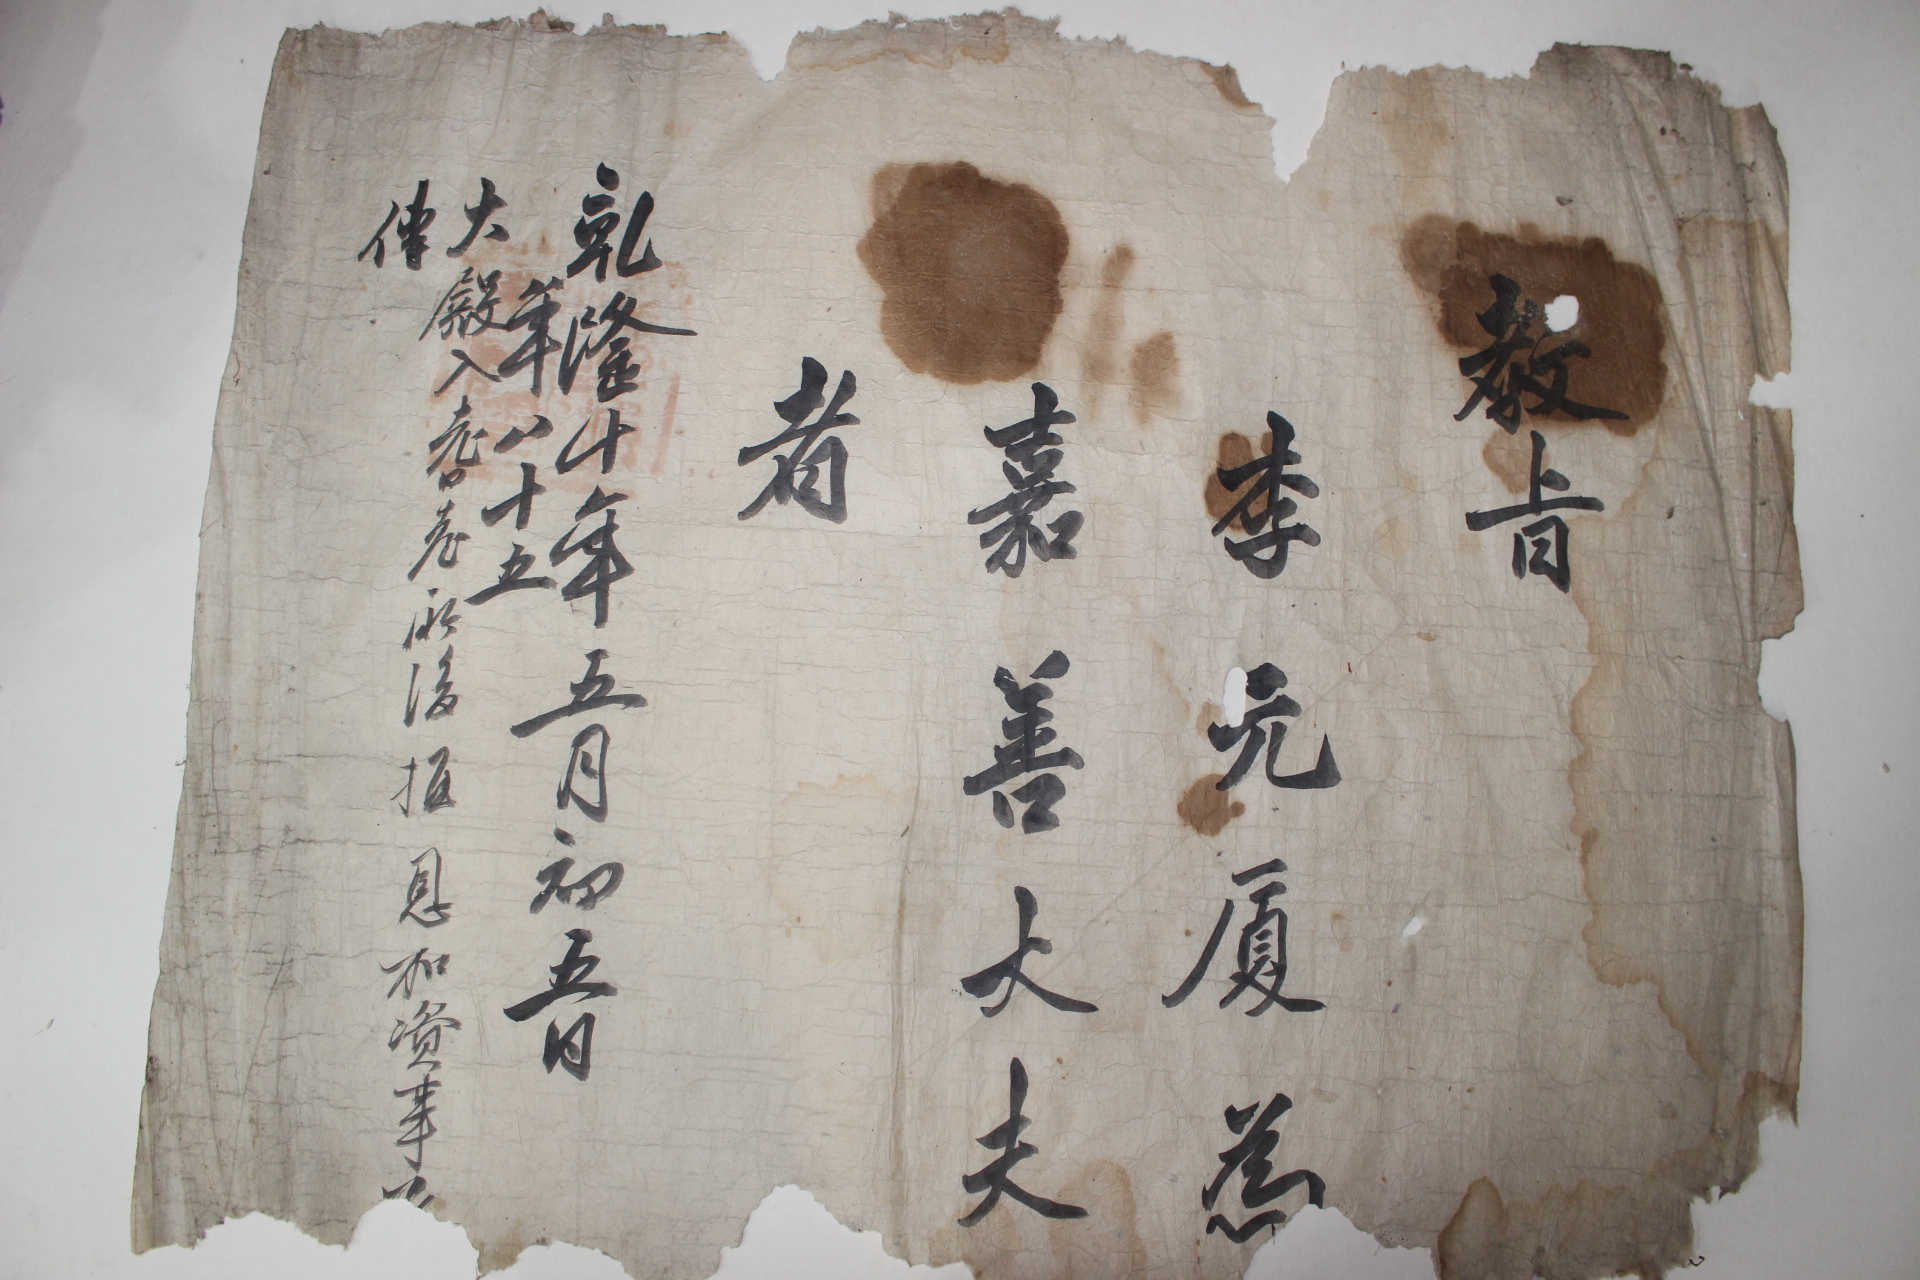 教旨
李元厦為
嘉善大夫
者
乾隆十年五月初五日
年八十五
大殿入耆老所後推恩加資事
傳